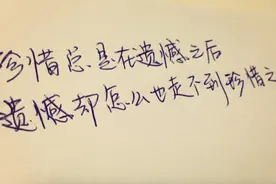 珍惜总是在遗憾之后
遗憾却怎么也走不到珍惜之